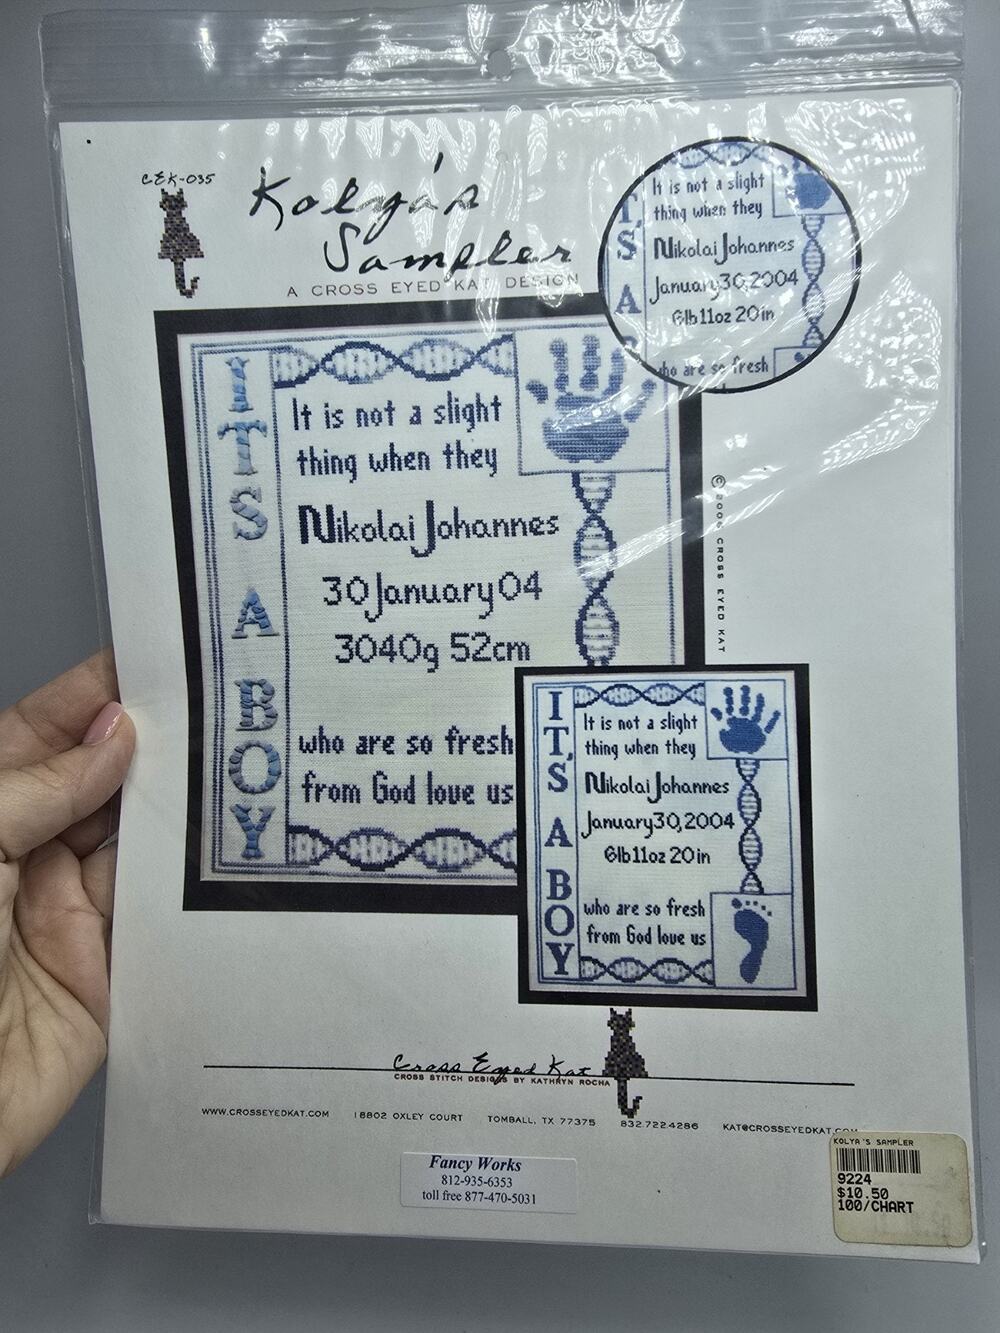 CEK-035
Kolya's
Sampler
A CROSS EYED KAT DESIGN
It is not a slight
thing when they
Nikolai Johannes
January 30, 2004
6lb 11oz 20in
who are so fresh
'S A
IT'S A BOY
It is not a slight
thing when they
Nikolai Johannes
30 January 04
3040g 52cm
who are so fresh
from God love us
© 2005 CROSS EYED KAT
IT'S A BOY
It is not a slight
thing when they
Nikolai Johannes
January 30, 2004
6lb 11oz 20in
who are so fresh
from God love us
Cross Eyed Kat
CROSS STITCH DESIGNS BY KATHRYN ROCHA
WWW.CROSSEYEDKAT.COM 18802 OXLEY COURT TOMBALL, TX 77375 832.722.4286 KAT@CROSSEYEDKAT.COM
Fancy Works
812-935-6353
toll free 877-470-5031
KOLYA'S SAMPLER
9224
$10.50
100/CHART